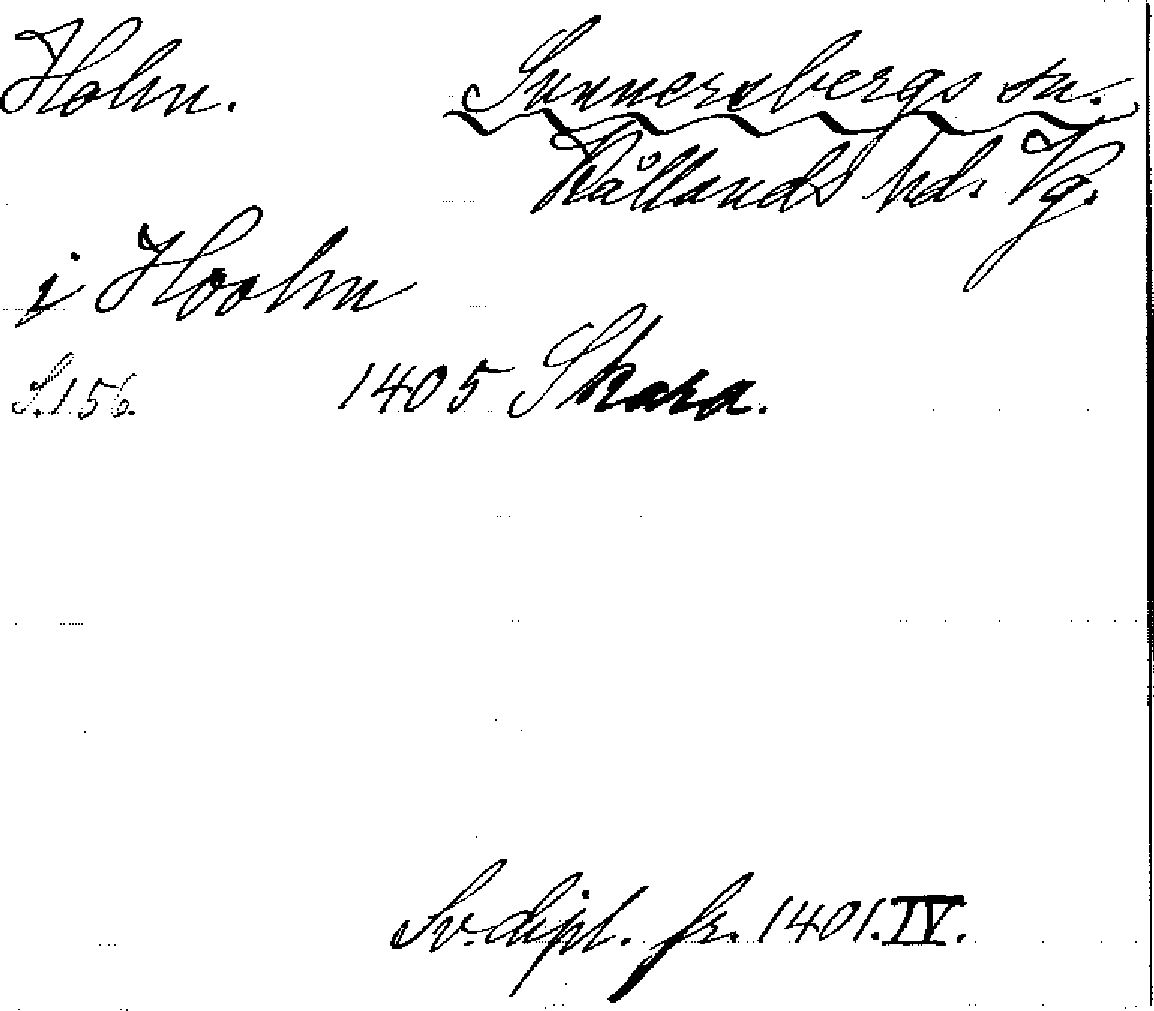 Holm. Sunnersbergs sn.
Kållands hd. Vg.
j Hoolm
S.156. 1405 Skara.
Sv. dipl. fr. 1401. IV.